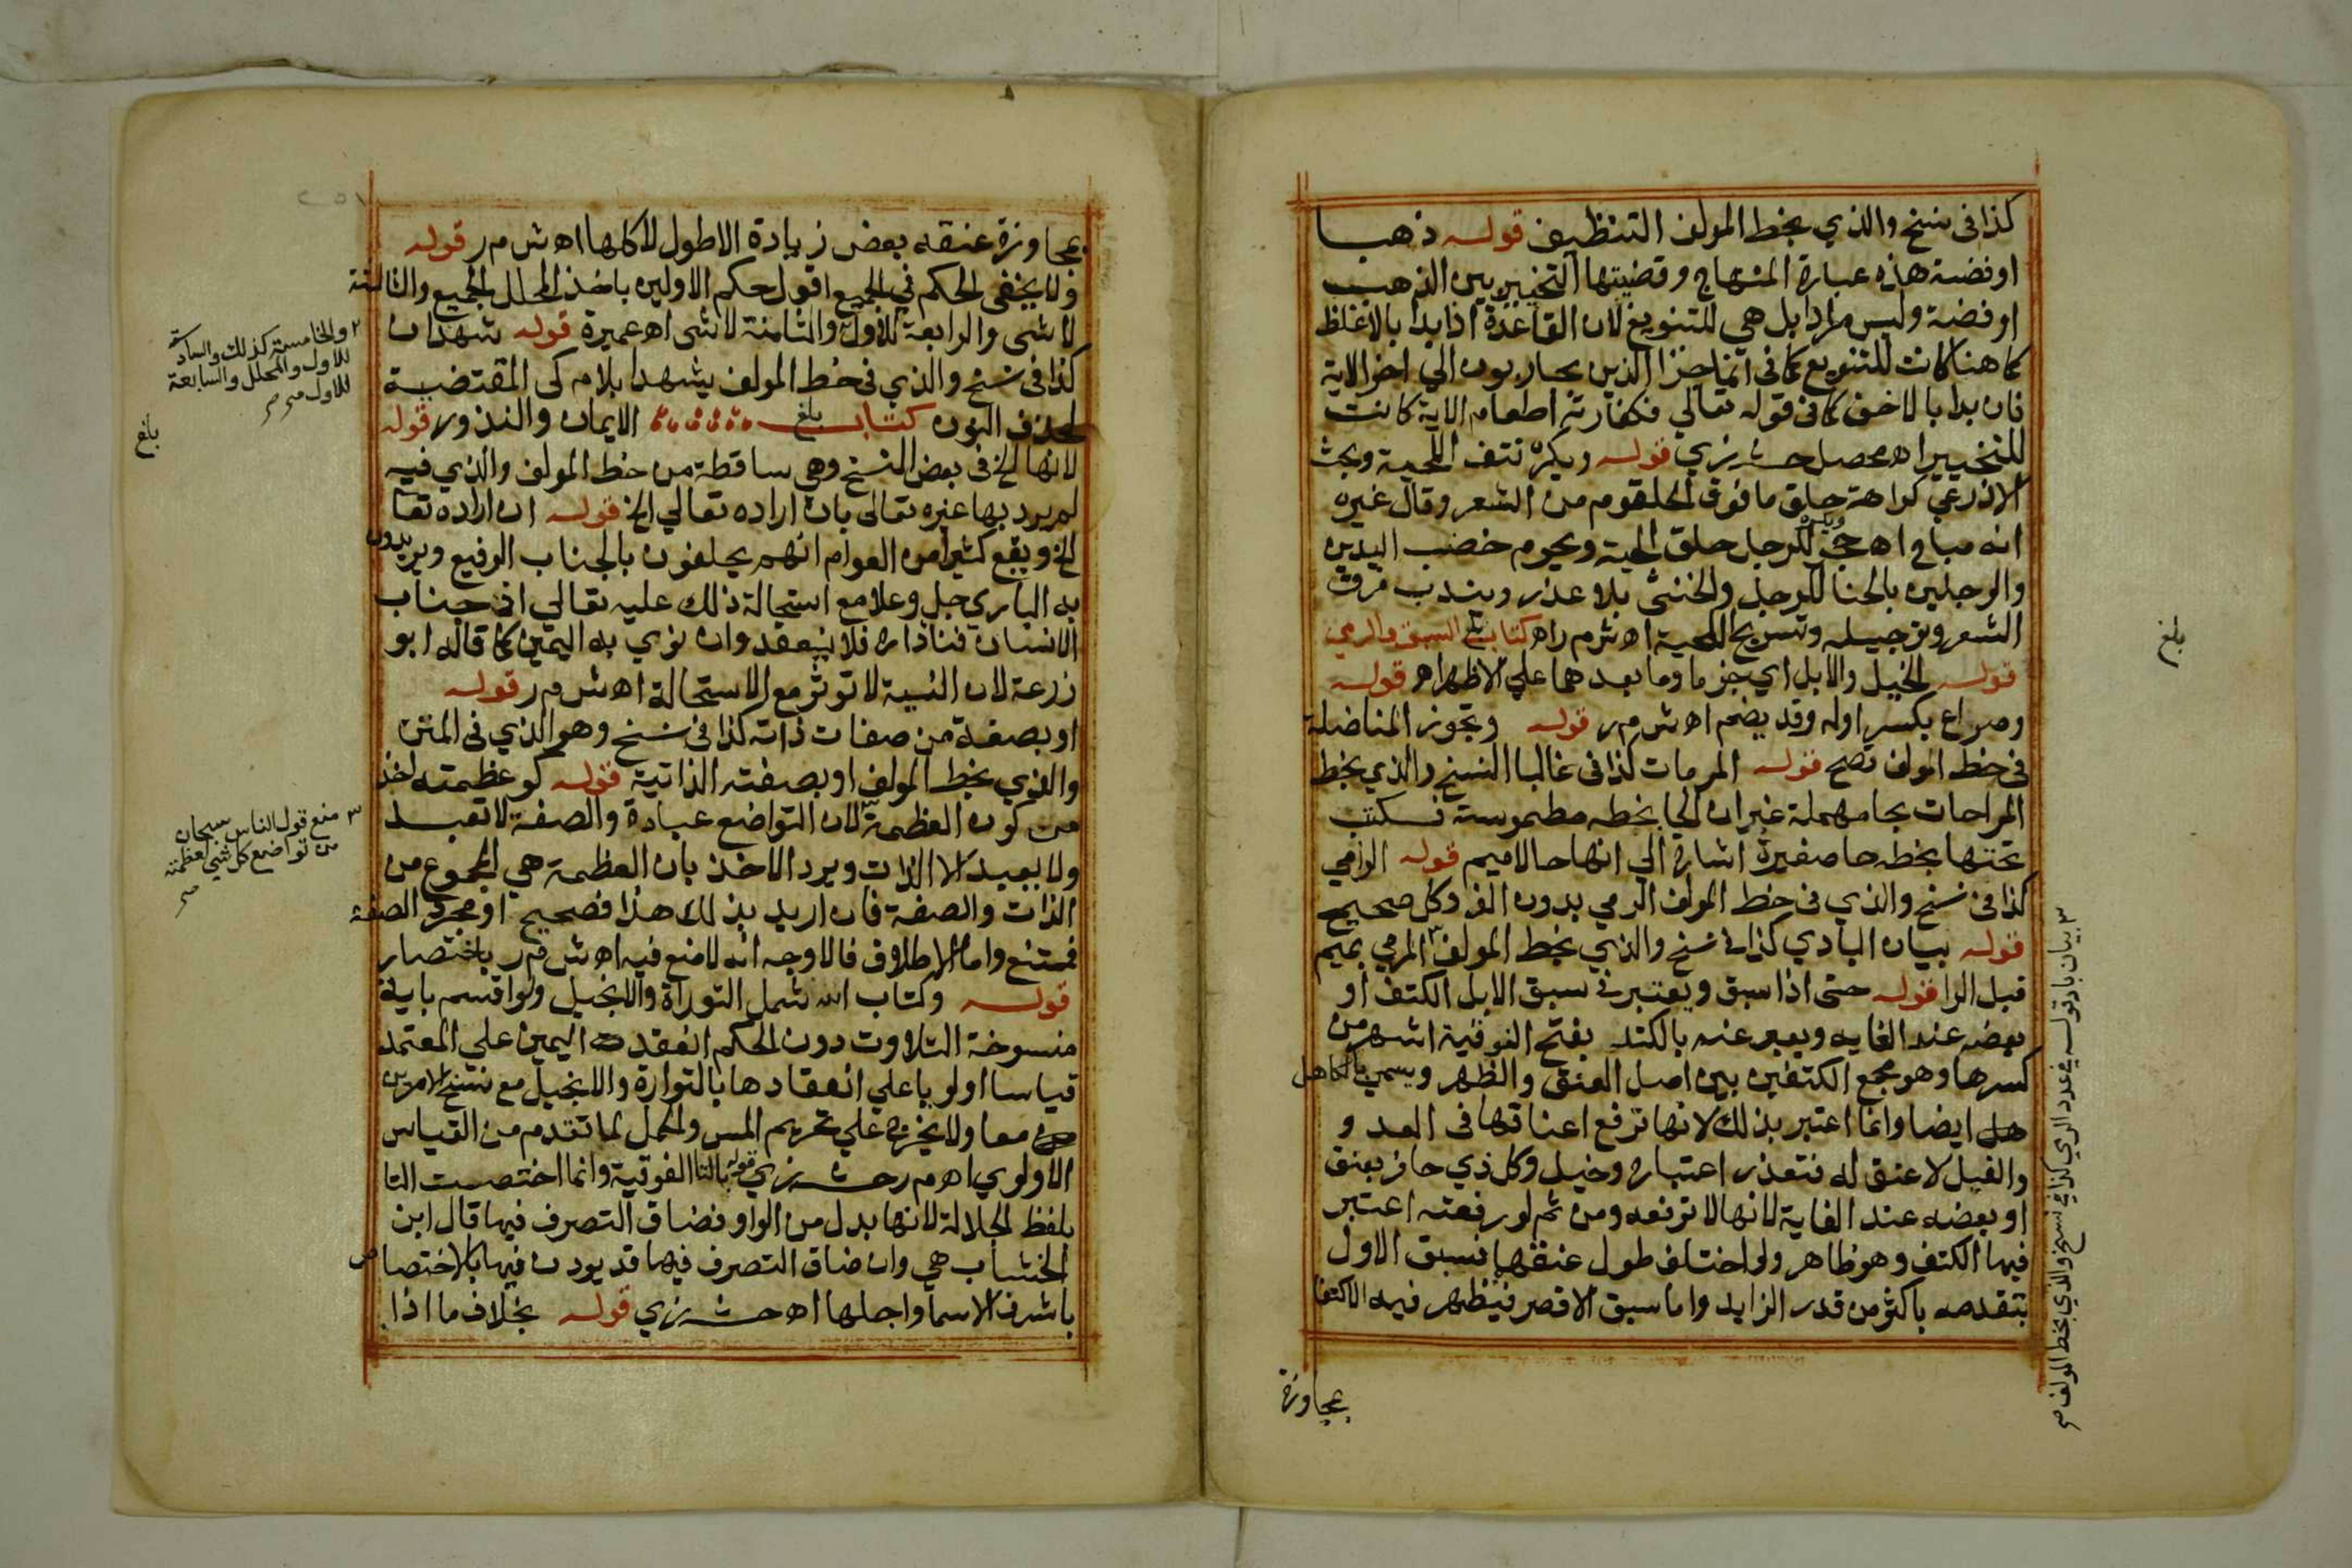 كذا فى نسخ والذي بخط المولف التنظيف قوله ذهب
او فضة هذه عبارة المنهاج وقضيتها التخيير بين الذهب
او فضة وليس مرادا بل هي للتنويع لان القاعدة اذا بدا بالاغلظ
كما هنا كانت للتنويع كما فى انما جزا الذين يحاربون الي اخر الاية
فان بدا بالاخف كما فى قوله تعالي فكفارته اطعام الاية كانت
للتخيير اه محصل حش زي قوله ويكره نتف اللحية وبحث
الاذرعي كراهة حلق ما فوق الحلقوم من الشعر وقال غيره
انه مباح اه حج للرجل حلق الحية ويحرم خضب اليدين
والرجلين بالحنا للرجل والخنثى بلا عذر ويندب فرق
الشعر وترجيله وتسريح اللحية اه ش م ر اه كتاب السبق والرمي
قوله الخيل والابل اي جز ما وما بعدهما علي الاظهر اه قوله
وصراع بكسر اوله وقد يضم اه ش م ر قوله وتجوز المناضلة
فى خط المولف تصح قوله المرمات كذا فى غالبا النسخ والذي بخط
المراحات بحا مهملة غير ان الحا بخطه مطموسة فكتب
تحتها بخطه حا صغيرة اشارة الي انها حا لا ميم قوله الرامي
كذا فى نسخ والذي فى خط المولف الرمي بدون الف وكل صحيح
قوله بيان البادي كذا فى نسخ والذي بخط المولف المرمي بميم
قبل الرا قوله حتى اذا سبق ويعتبر فى سبق الابل الكتف او
بعضه عند الغايه ويعبر عنه بالكتد بفتح الفوقية اشهر من
كسرها وهو مجمع الكتفين بين اصل العنق والظهر ويسمي بالكاهل
هل ايضا وانما اعتبر بذلك لانها ترفع اعناقها فى العد و
والفيل لا عنق له فتعذر اعتباره وخيل وكل ذي حافر بعنق
او بعضه عند الغاية لانها لا ترفعه ومن ثم لو رفعته اعتبر
فيها الكتف وهو ظاهر ولو اختلف طول عنقها فسبق الاول
بتقدمه باكثر من قدر الزايد واما سبق الاقصر فيظهر فيه الاكتفا
بمجاوزة
بلغ
٣ بيان بادقوله فى عدد الرمي كذا فى نسخ والذي بخط المولف صح
بمجاوزة عنقه بعض زيادة الاطول لا كلها اه ش م ر قوله
ولا يخفى الحكم في الجميع اقول حكم الاولين باخذ المحلل الجميع والثالثة
لا شى والرابعة للاول والثامنة لا شى اه عميرة قوله شهدان
كذا فى نسخ والذي فى خط المولف يشهدا بلام كى المقتضية
لحذف النون كتاب الايمان والنذور قوله
بلغ
لانها الخ فى بعض النسخ وهي ساقطة من خط المولف والذي فيه
لم يرد بها غيره تعالى بان اراده تعالي الخ قوله ان اراده تعا
الخ ويقع كثيرا من العوام انهم يحلفون بالجناب الرفيع ويريدون
به الباري جل وعلا مع استحالة ذلك عليه تعالي اذ جناب
الانسان فنا داره فلا ينعقد وان نوي به اليمين كما قاله ابو
زرعة لان النية لا توثر مع الاستحالة اه ش م ر قوله
او بصفة من صفات ذاته كذا فى نسخ وهو الذي فى المتن
والذي بخط المولف او بصفته الذاتية قوله كوعظمته اخذ
من كون العظمة لان التواضع عبادة والصفة لا تعبد
ولا يعبد الا الذات ويرد الاخذ بان العظمة هي المجموع من
الذات والصفة فان اريد بذلك هذا فصحيح او مجرد الصفة
فممتنع واما الاطلاق فالاوجه انه لا منع فيه اه ش م ر باختصار
قوله وكتاب الله شمل التوراة والانجيل ولو اقسم باية
منسوخة التلاوت دون الحكم انعقد اليمين علي المعتمد
قياسا اولويا علي انعقادها بالتوارة والانجيل مع نسخ الامرين
معا ولا يخرج علي تحريم المس والحمل لما تقدم من القياس
الاولوي اه م ر حش زي قوله بالتا الفوقية وانما اختصت التا
بلفظ الجلالة لانها بدل من الواو فضاق التصرف فيها قال ابن
الخشاب هي وان ضاق التصرف فيها قد بورك فيها بالاختصاص
باشرف الاسما واجلها اه حش زي قوله بخلاف ما اذا
٢ والخامسة كذلك والسادسة
للاول والمحلل والسابعة
للاول صح
بلغ
٣ منع قول الناس سبحان
من تواضع كل شي لعظمته
صح